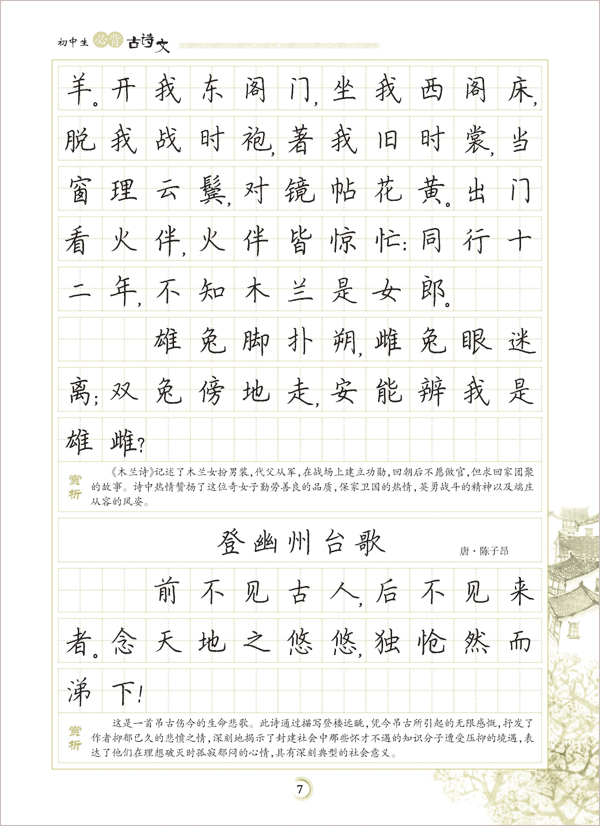 初中生 必背 古诗文
羊。开我东阁门,坐我西阁床,
脱我战时袍,著我旧时裳,当
窗理云鬓,对镜帖花黄。出门
看火伴,火伴皆惊忙:同行十
二年,不知木兰是女郎。
雄兔脚扑朔,雌兔眼迷
离;双兔傍地走,安能辨我是
雄雌?
赏析
《木兰诗》记述了木兰女扮男装,代父从军,在战场上建立功勋,回朝后不愿做官,但求回家团聚
的故事。诗中热情赞扬了这位奇女子勤劳善良的品质,保家卫国的热情,英勇战斗的精神以及端庄
从容的风姿。
登幽州台歌
唐·陈子昂
前不见古人,后不见来
者。念天地之悠悠,独怆然而
涕下!
赏析
这是一首吊古伤今的生命悲歌。此诗通过描写登楼远眺,凭今吊古所引起的无限感慨,抒发了
作者抑郁已久的悲愤之情,深刻地揭示了封建社会中那些怀才不遇的知识分子遭受压抑的境遇,表
达了他们在理想破灭时孤寂郁闷的心情,具有深刻典型的社会意义。
7